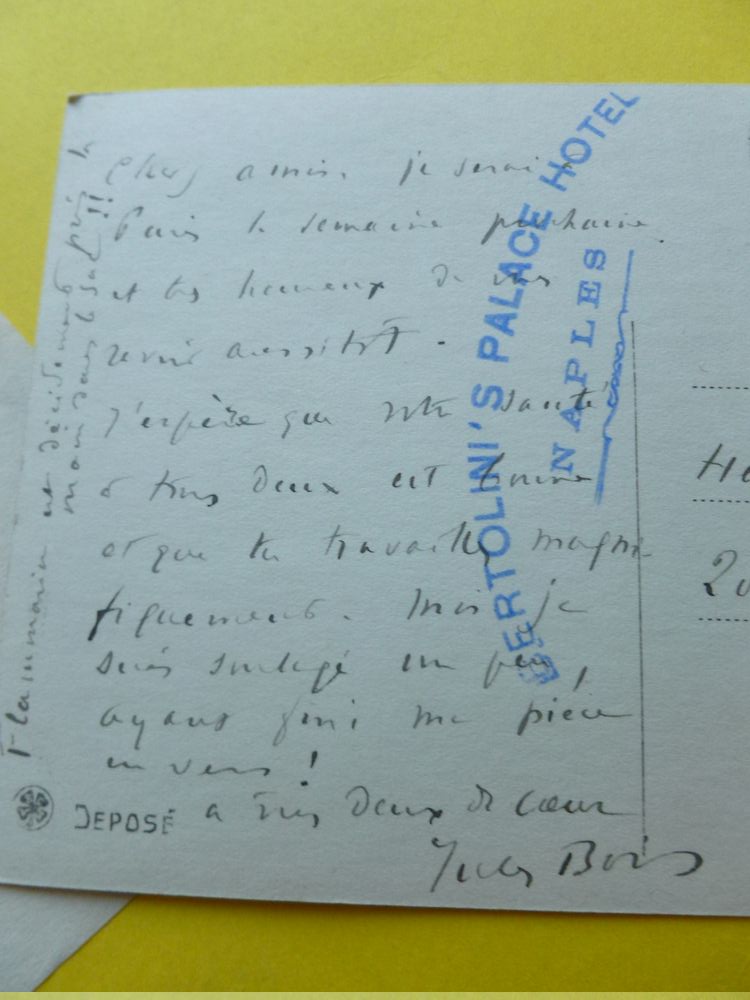 Chers amis. je serai à
Paris la semaine prochaine.
et très heureux de vous
revoir aussitôt.
J'espère que votre santé
à tous deux est bonne
et que tu travailles magni-
fiquement. Moi je
suis soulagé un peu,
ayant fini ma pièce
en vers !
a vous deux de cœur
Jules Bois
Flammarion est décidément pris la
main dans le sac !!
DEPOSÉ
BERTOLINI'S PALACE HOTEL
NAPLES